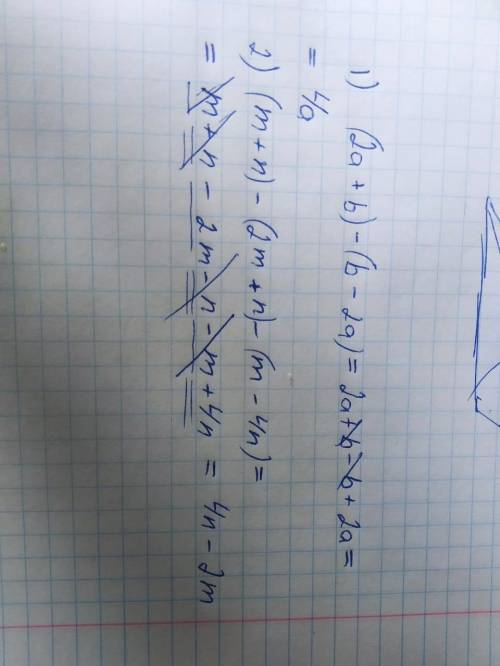 1) (2a + b) - (b - 2a) = 2a + b - b + 2a =
= 4a
2) (m + n) - (2m + n) - (m - 4n) =
= m + n - 2m - n - m + 4n = 4n - 2m